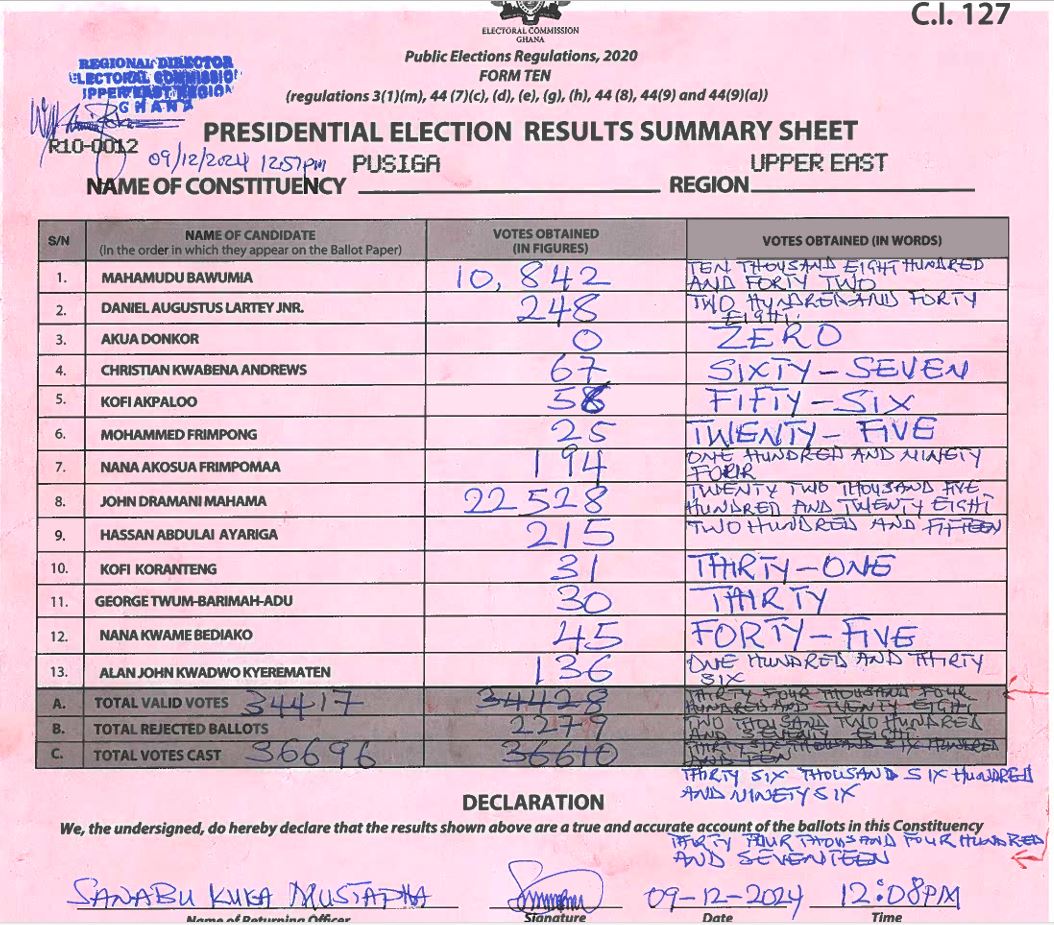 C.I. 127
ELECTORAL COMMISSION
GHANA
Public Elections Regulations, 2020
FORM TEN
(regulations 3(1)(m), 44 (7)(c), (d), (e), (g), (h), 44 (8), 44(9) and 44(9)(a))
REGIONAL DIRECTOR
ELECTORAL COMMISSION
UPPER EAST REGION
GHANA
PRESIDENTIAL ELECTION RESULTS SUMMARY SHEET
R10-0012
09/12/2024 12:57pm
NAME OF CONSTITUENCY PUSIGA REGION UPPER EAST
S/N NAME OF CANDIDATE (In the order in which they appear on the Ballot Paper) VOTES OBTAINED (IN FIGURES) VOTES OBTAINED (IN WORDS)
1. MAHAMUDU BAWUMIA 10,842 TEN THOUSAND EIGHT HUNDRED
AND FORTY TWO
2. DANIEL AUGUSTUS LARTEY JNR. 248 TWO HUNDRED AND FORTY
EIGHT.
3. AKUA DONKOR 0 ZERO
4. CHRISTIAN KWABENA ANDREWS 67 SIXTY-SEVEN
5. KOFI AKPALOO 56 FIFTY-SIX
6. MOHAMMED FRIMPONG 25 TWENTY-FIVE
7. NANA AKOSUA FRIMPOMAA 194 ONE HUNDRED AND NINETY
FOUR
8. JOHN DRAMANI MAHAMA 22528 TWENTY TWO THOUSAND FIVE
HUNDRED AND TWENTY EIGHT
9. HASSAN ABDULAI AYARIGA 215 TWO HUNDRED AND FIFTEEN
10. KOFI KORANTENG 31 THIRTY-ONE
11. GEORGE TWUM-BARIMAH-ADU 30 THIRTY
12. NANA KWAME BEDIAKO 45 FORTY-FIVE
13. ALAN JOHN KWADWO KYEREMATEN 136 ONE HUNDRED AND THIRTY
SIX
A. TOTAL VALID VOTES 34417 34428 THIRTY FOUR THOUSAND FOUR
HUNDRED AND TWENTY EIGHT
B. TOTAL REJECTED BALLOTS 2279 TWO THOUSAND TWO HUNDRED
AND SEVENTY EIGHT
C. TOTAL VOTES CAST 36696 36610 THIRTY SIX THOUSAND SIX HUNDRED
AND TEN
THIRTY SIX THOUSAND SIX HUNDRED
AND NINETY SIX
DECLARATION
We, the undersigned, do hereby declare that the results shown above are a true and accurate account of the ballots in this Constituency
THIRTY FOUR THOUSAND FOUR HUNDRED
AND SEVENTEEN
SANABU KUKA MUSTAPHA 09-12-2024 12:08PM
Name of Returning Officer Signature Date Time